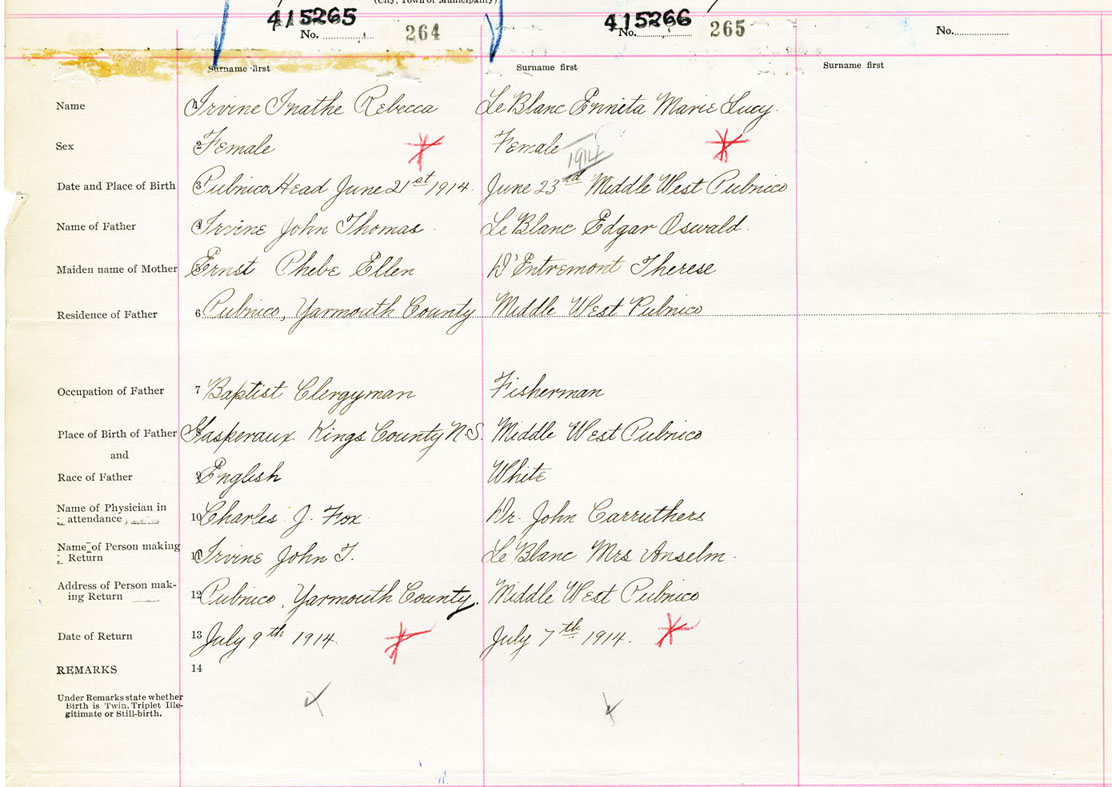 (City, Town or Municipality)
415265 415266
No. 264 No. 265 No.
Surname first Surname first Surname first
Name 1 Irvine Inathe Rebecca LeBlanc Ennita Marie Lucy.
Sex 2 Female Female
1914
Date and Place of Birth 3 Pubnico Head June 21st 1914. June 23rd Middle West Pubnico
Name of Father 4 Irvine John Thomas. LeBlanc Edgar Oswald.
Maiden name of Mother 5 Ernst Phebe Ellen D'Entremont Therese
Residence of Father 6 Pubnico, Yarmouth County Middle West Pubnico
Occupation of Father 7 Baptist Clergyman Fisherman
Place of Birth of Father 8 Gasperaux Kings County N.S. Middle West Pubnico
and
Race of Father 9 English White
Name of Physician in
attendance 10 Charles J. Fox Dr. John Carruthers
Name of Person making
Return 11 Irvine John T. Le Blanc Mrs Anselm.
Address of Person mak-
ing Return 12 Pubnico, Yarmouth County. Middle West Pubnico
Date of Return 13 July 9th 1914. July 7th 1914.
REMARKS 14
Under Remarks state whether
Birth is Twin, Triplet Ille-
gitimate or Still-birth.